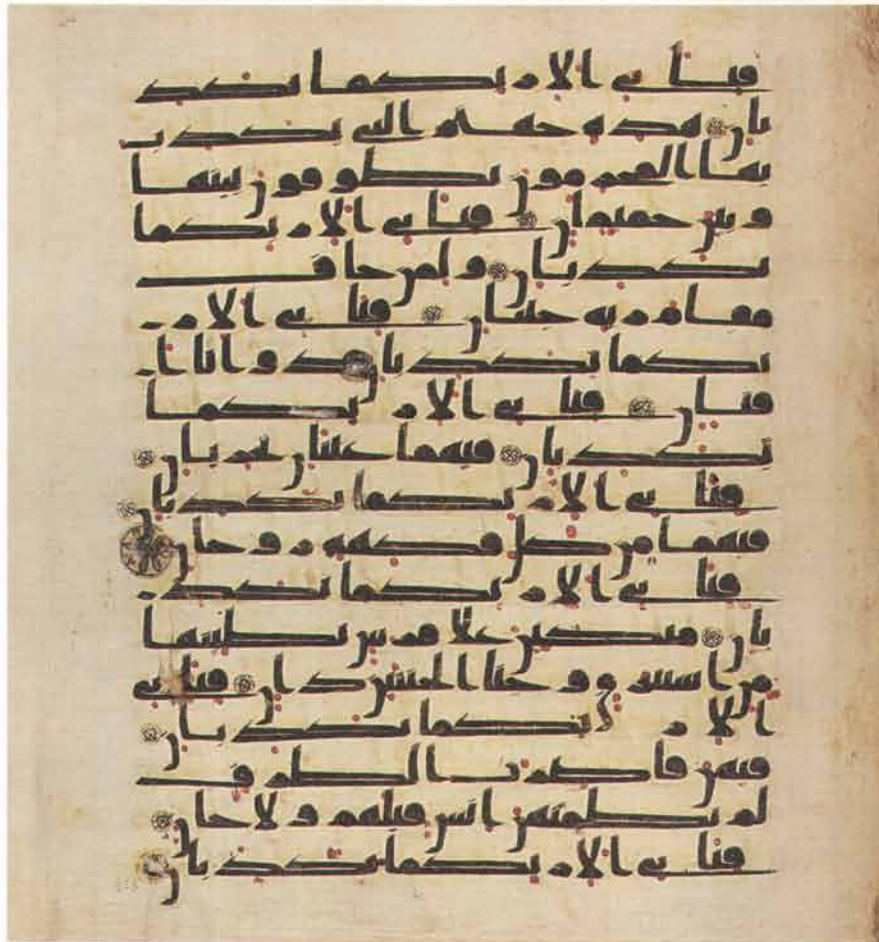 فباي الاء ربكما تكذ
بان هذه جهنم التي يكذب
بها المجرمون يطوفون بينها
وبين حميم ان فباي الاء ربكما
تكذبان ولمن خاف
مقام ربه جنتان فباي الاء ر
بكما تكذبان ذواتا ا
فنان فباي الاء ربكما
تكذبان فيهما عينان تجريان
فباي الاء ربكما تكذبان
فيهما من كل فكهة زوجان
فباي الاء ربكما تكذ
بان متكين علا فرش بطينها
من استبرق وجنا الجنتين دان فباي
الاء ربكما تكذبان
فيهن قاصرات الطرف
لم يطمثهن انس قبلهم ولا جان
فباي الاء ربكما تكذبان